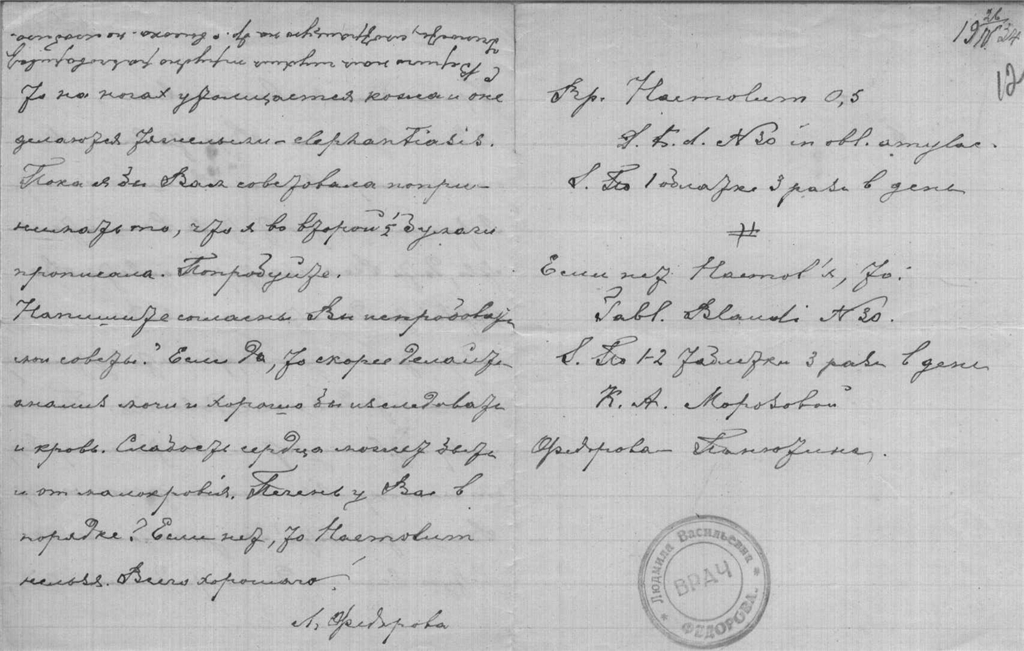 то на ногах утолщается кожа и оне
делаются тяжелыми - elephantiasis.
Пока я бы Вам советовала попри-
нимать то, что я во второй 1/2 бумаги
прописала. Попробуйте.
Напишите согласны Вы испробовать
мои советы? Если да, то скорее делайте
анализ мочи и хорошо бы изследовать
и кровь. Слабость сердца может быть
и от малокровія. Печень у Вас в
порядке? Если нет, то Haemovum
нельзя. Всего хорошаго
Л. Федорова
19 26/IV 34
12
Rp. Haemovum 0,5
D. t. d. N 30 in obl. amylac.
S. По 1 облатке 3 раза в день
#
Если нет Haemov'а, то:
Tabl. Blaudi N 30.
S. По 1-2 таблетки 3 раза в день
К. А. Морозовой
Федорова Панютина.
Людмила Васильевна
ВРАЧ
ФЕДОРОВА.